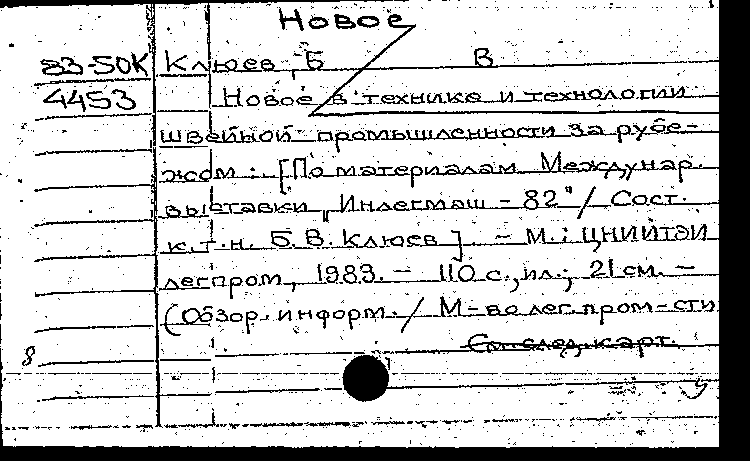 Новое
83-50К Клюев, Б В
4453 Новое в технике и технологии
швейной промышленности за рубе-
жом : [По материалам Междунар.
выставки „Инлегмаш - 82"/ Сост.
к.т.н. Б.В. Клюев]. - М.: ЦНИИТЭИ
легпром, 1983. - 110 с., ил.; 21 см. -
(Обзор. информ./ М-во лег. пром-сти
См. след. карт.
8